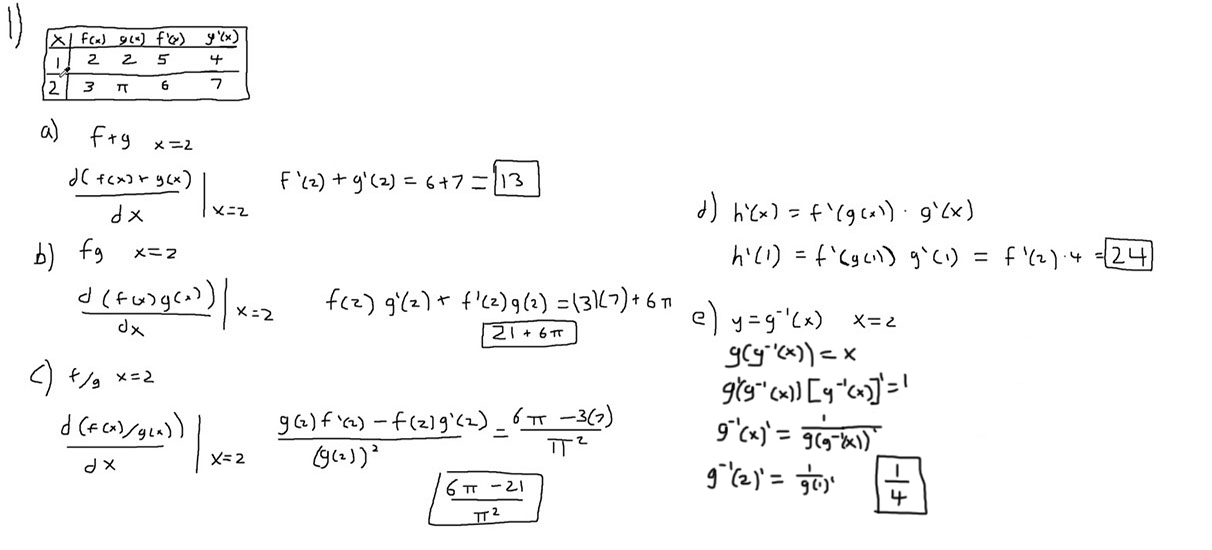 1)
x f(x) g(x) f'(x) g'(x)
1 2 2 5 4
2 3 π 6 7
a) f+g x=2
d(f(x)+g(x))/dx |x=2 f'(2)+g'(2)=6+7=13
b) fg x=2
d(f(x)g(x))/dx |x=2 f(2)g'(2)+f'(2)g(2)=(3)(7)+6π
21+6π
c) f/g x=2
d(f(x)/g(x))/dx |x=2 g(2)f'(2)-f(2)g'(2)/(g(2))² = 6π-3(7)/π²
6π-21/π²
d) h'(x)=f'(g(x))·g'(x)
h'(1)=f'(g(1))g'(1)=f'(2)·4=24
e) y=g⁻¹(x) x=2
g(g⁻¹(x))=x
g'(g⁻¹(x))[g⁻¹(x)]'=1
g⁻¹(x)'=1/g(g⁻¹(x))'
g⁻¹(2)'=1/g(1)' 1/4